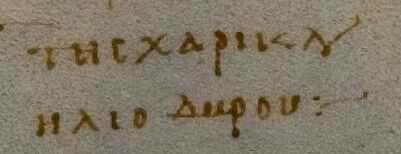 της χαρικλ
ηλιοδωρου: